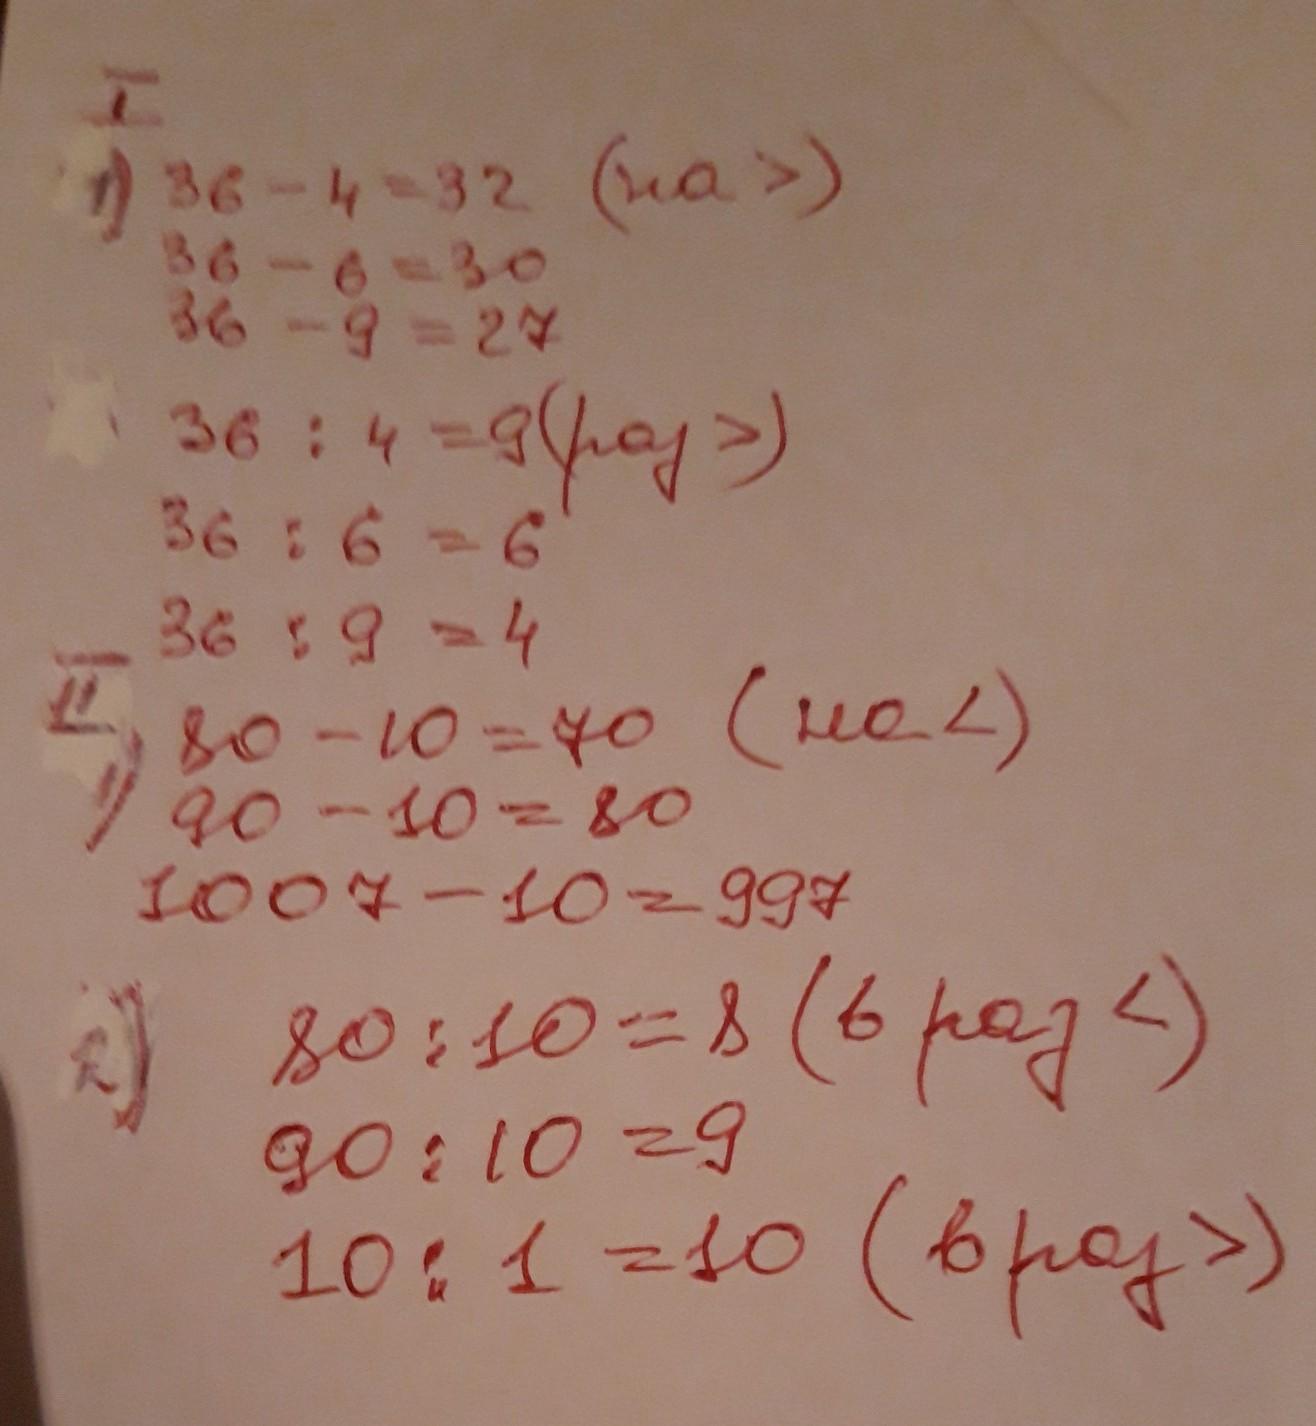 I
1) 36 - 4 = 32 (на >)
36 - 6 = 30
36 - 9 = 27
36 : 4 = 9 (раз >)
36 : 6 = 6
36 : 9 = 4
II
1) 80 - 10 = 70 (на <)
90 - 10 = 80
1007 - 10 = 997
2) 80 : 10 = 8 (в раз <)
90 : 10 = 9
10 : 1 = 10 (в раз >)